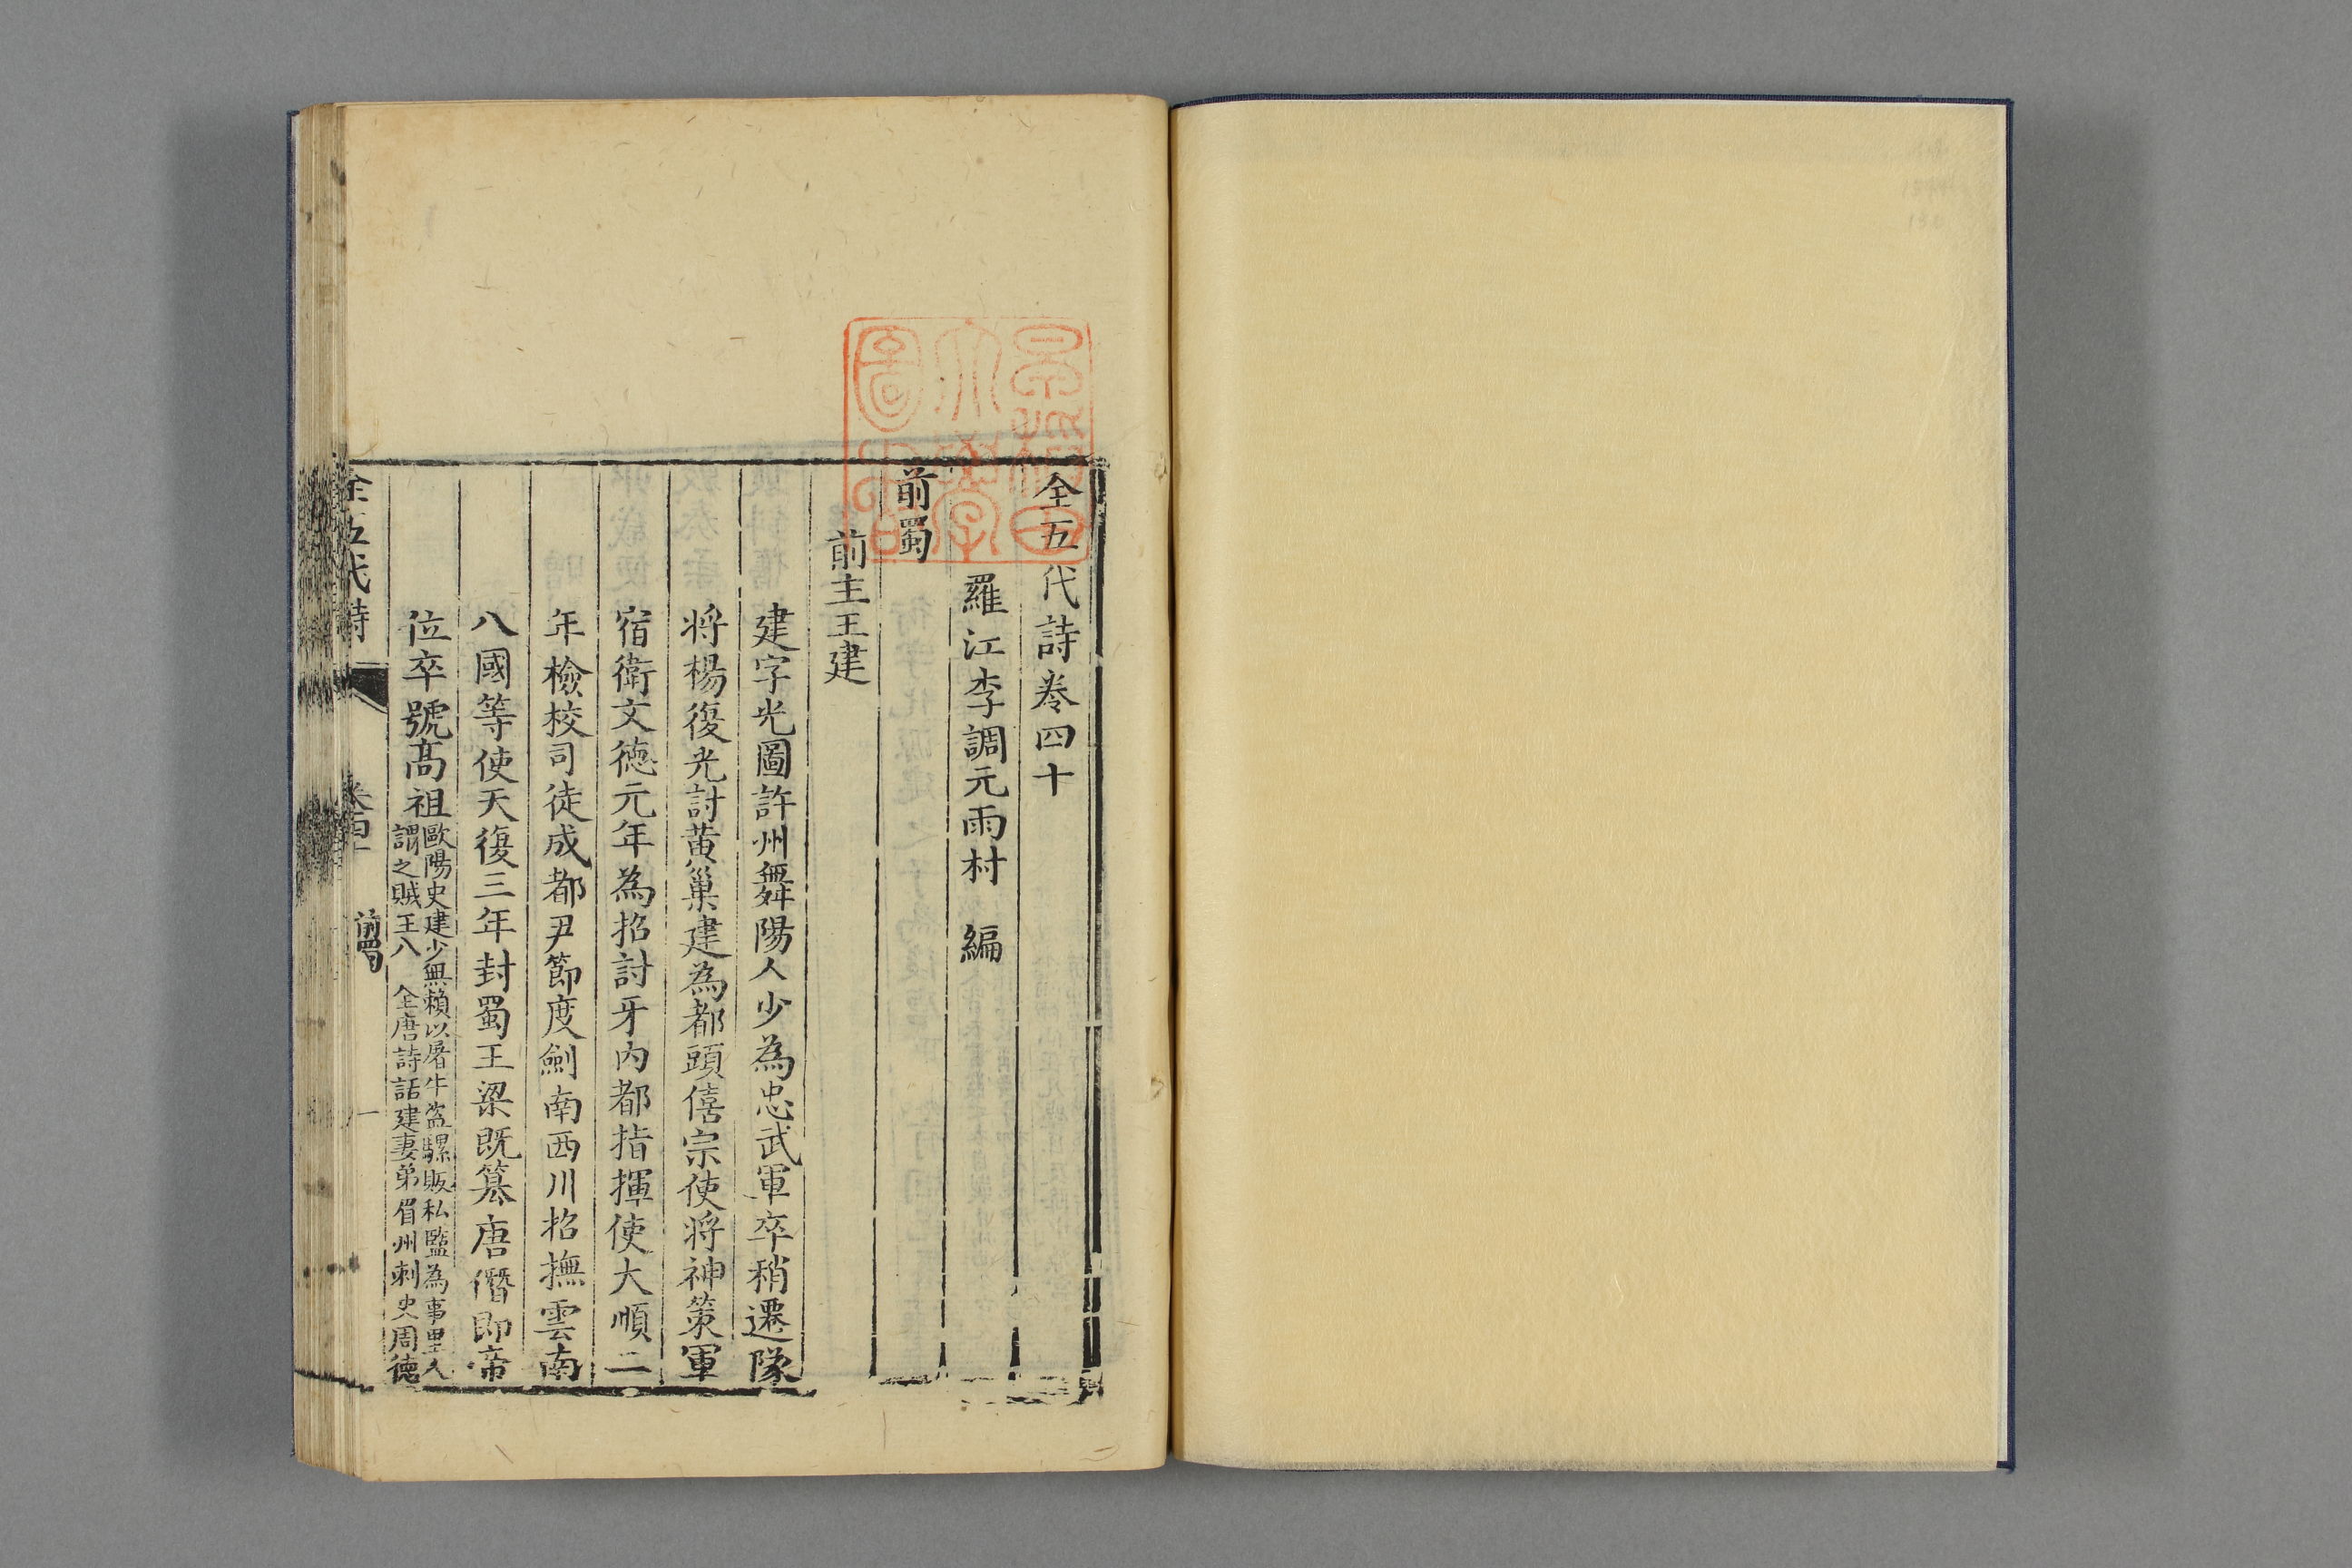 全五代詩卷四十
羅江李調元雨村 編
前蜀
前主王建
建字光圖許州舞陽人少為忠武軍卒稍遷隊
將楊復光討黃巢建為都頭僖宗使將神策軍
宿衛文德元年為招討牙內都指揮使大順二
年檢校司徒成都尹節度劍南西川招撫雲南
八國等使天復三年封蜀王梁既篡唐僭即帝
位卒號高祖
歐陽史建少無賴以屠牛盜騾販私鹽為事里人
謂之賊王八 全唐詩話建妻弟眉州刺史周德
全五代詩
前蜀
一